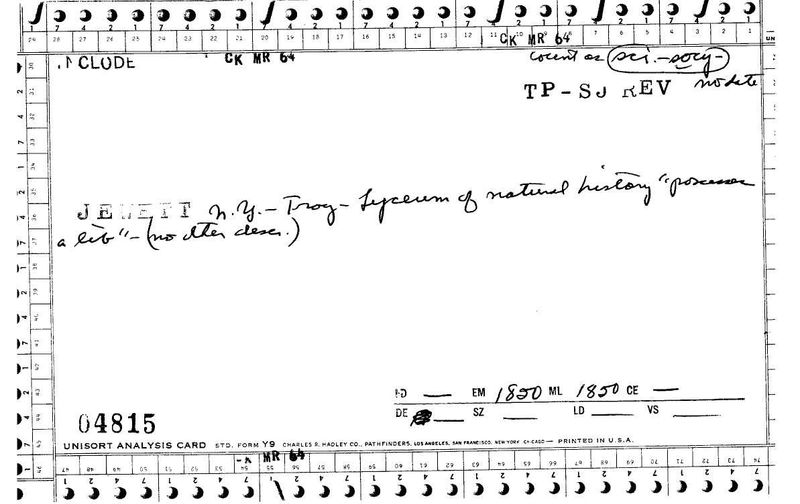 CK MR 64
.NCLUDE CK MR 64 count as sci.-socy-
TP-SJ REV no date
JEWETT N.Y.- Troy- Lyceum of natural history "possesses
a lib"- (no other descr.)
EM 1850 ML 1850 CE —
DE SZ LD VS
04815
UNISORT ANALYSIS CARD STD. FORM Y9 CHARLES R. HADLEY CO., PATHFINDERS, LOS ANGELES, SAN FRANCISCO, NEW YORK CHICAGO — PRINTED IN U.S.A.
MR 64